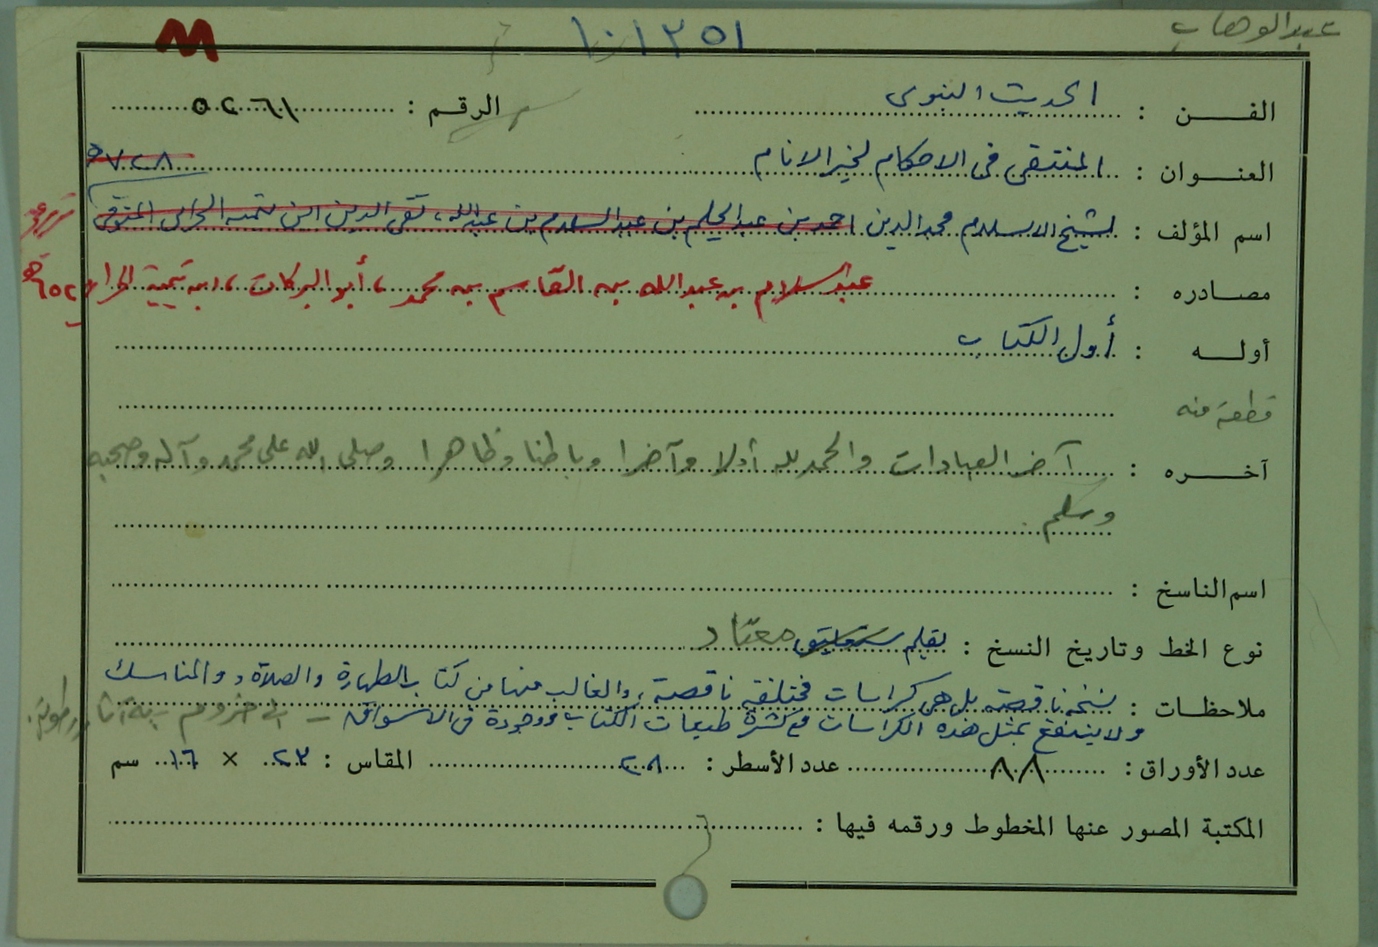 عبدالوهاب
١٠١٢٥١
الفن : الحديث النبوى
الرقم : ٥٢٦١
العنوان : المنتقى فى الاحكام لخير الانام ٧٢٨هـ
اسم المؤلف : لشيخ الاسلام مجد الدين احمد بن عبدالحليم بن عبد السلام بن عبدالله، تقى الدين ابن تيمية الحرانى المتوفى
مصادره : عبدالسلام بن عبدالله بن القاسم بن محمد ، أبو البركات ، ابن تيمية الحرانى ٦٥٢هـ
أوله : أول الكتاب
قطعة منه
آخره : آخر العبادات والحمد لله أولا وآخرا وباطنا وظاهرا وصلى الله على محمد وآله وصحبه
وسلم
اسم الناسخ :
نوع الخط وتاريخ النسخ : بقلم معتاد
ملاحظات : نسخة ناقصة بل هى كراسات مختلفة ناقصة، والغالب منها من كتاب الطهارة والصلاة، والمناسك
ولا ينتفع بمثل هذه الكراسات مع كثرة طبعات الكتاب موجودة فى الاسواق - به آثار رطوبة.
عدد الأوراق : ٨٨ عدد الأسطر : ٢٨ المقاس : ٢٣ × ١٦ سم
المكتبة المصور عنها المخطوط ورقمه فيها :